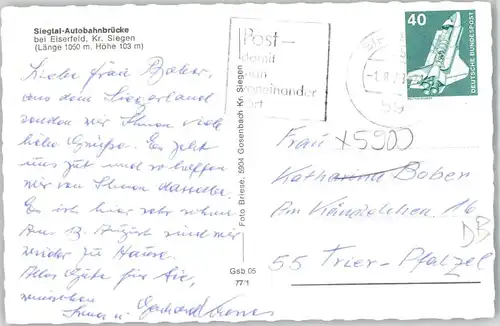 Siegtal-Autobahnbrücke
bei Eiserfeld, Kr. Siegen
(Länge 1050 m. Höhe 103 m)
Liebe Frau Bober,
aus dem Siegerland
senden wir Ihnen viele
liebe Grüße. Es geht
uns gut und so hoffen
wir von Ihnen dasselbe.
Es ist hier sehr schön.
Am 13. August sind wir
wieder zu Hause.
Alles Gute für Sie,
wünschen
Irma u. Gerhard
Foto Briese, 5904 Gosenbach Kr. Siegen
Gsb 05
77/1
Post –
damit
man
voneinander
hört
59
40
DEUTSCHE BUNDESPOST
Frau x5900
Katharina Bober
Am Kändelchen 16
DB
55 Trier-Pfalzel